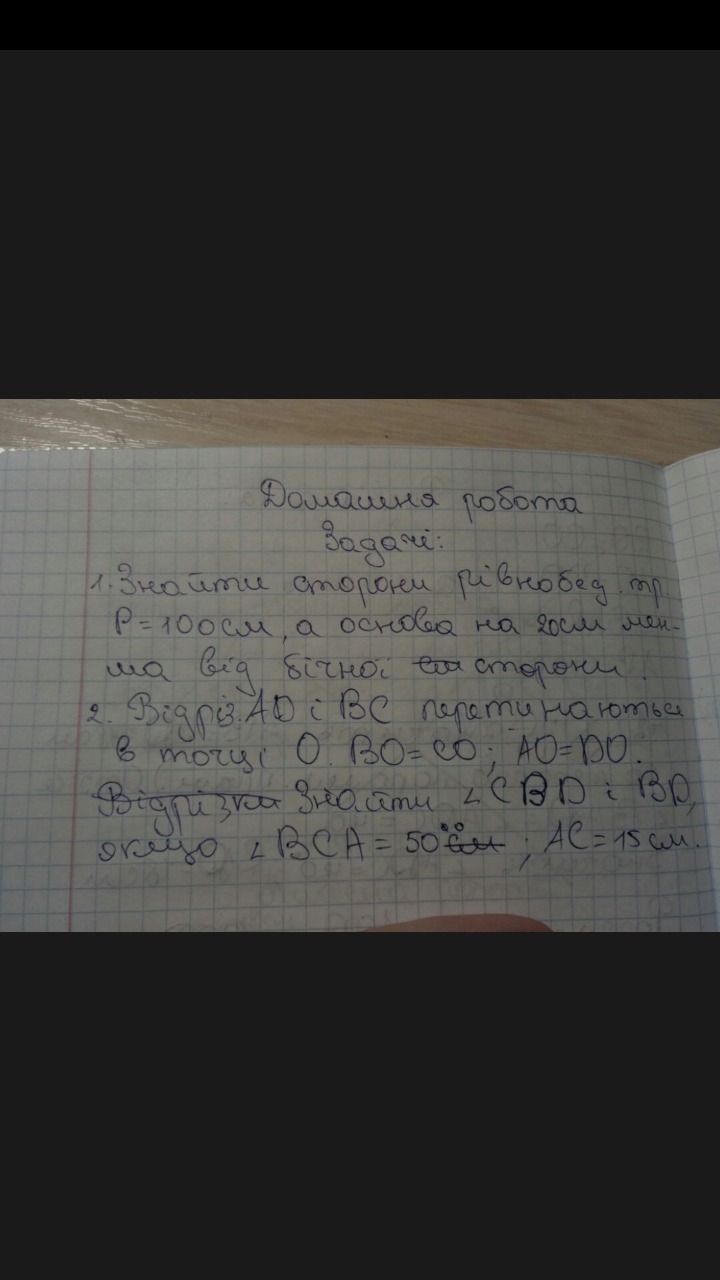 Домашня робота
Задачі:
1. Знайти сторони рівнобед. тр.
P=100см, а основа на 20см мен-
ша від бічної сторони.
2. Відріз. AD і BC перетинаються
в точці O. BO=CO; AO=DO.
Відрізки Знайти ∠CBD і BD,
якщо ∠BCA = 50° см; AC=15см.